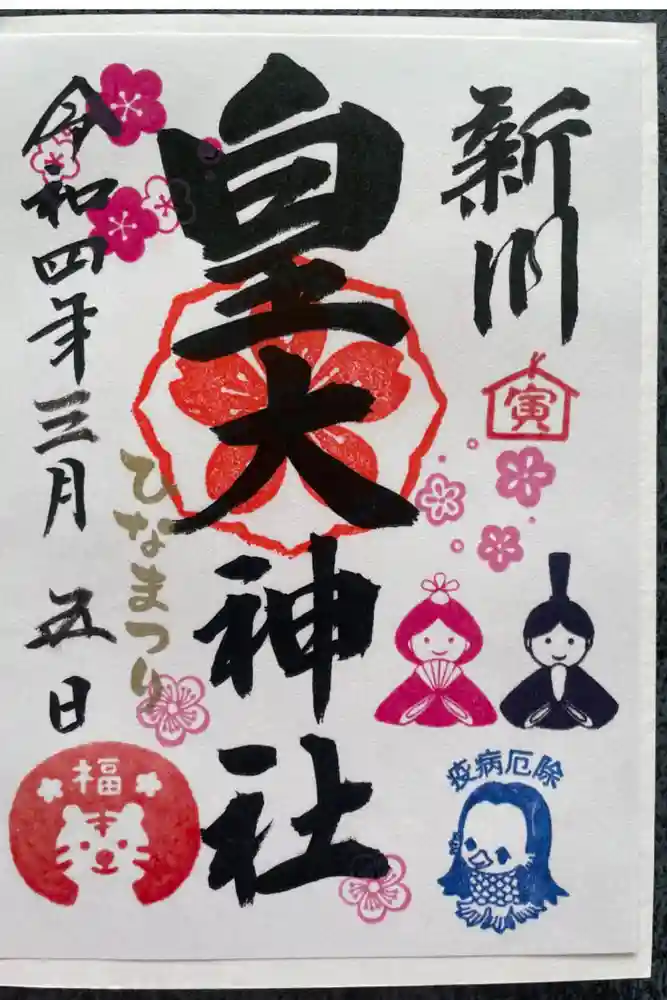 新川
寅
皇大神社
ひなまつり
令和四年三月五日
疫病厄除
福